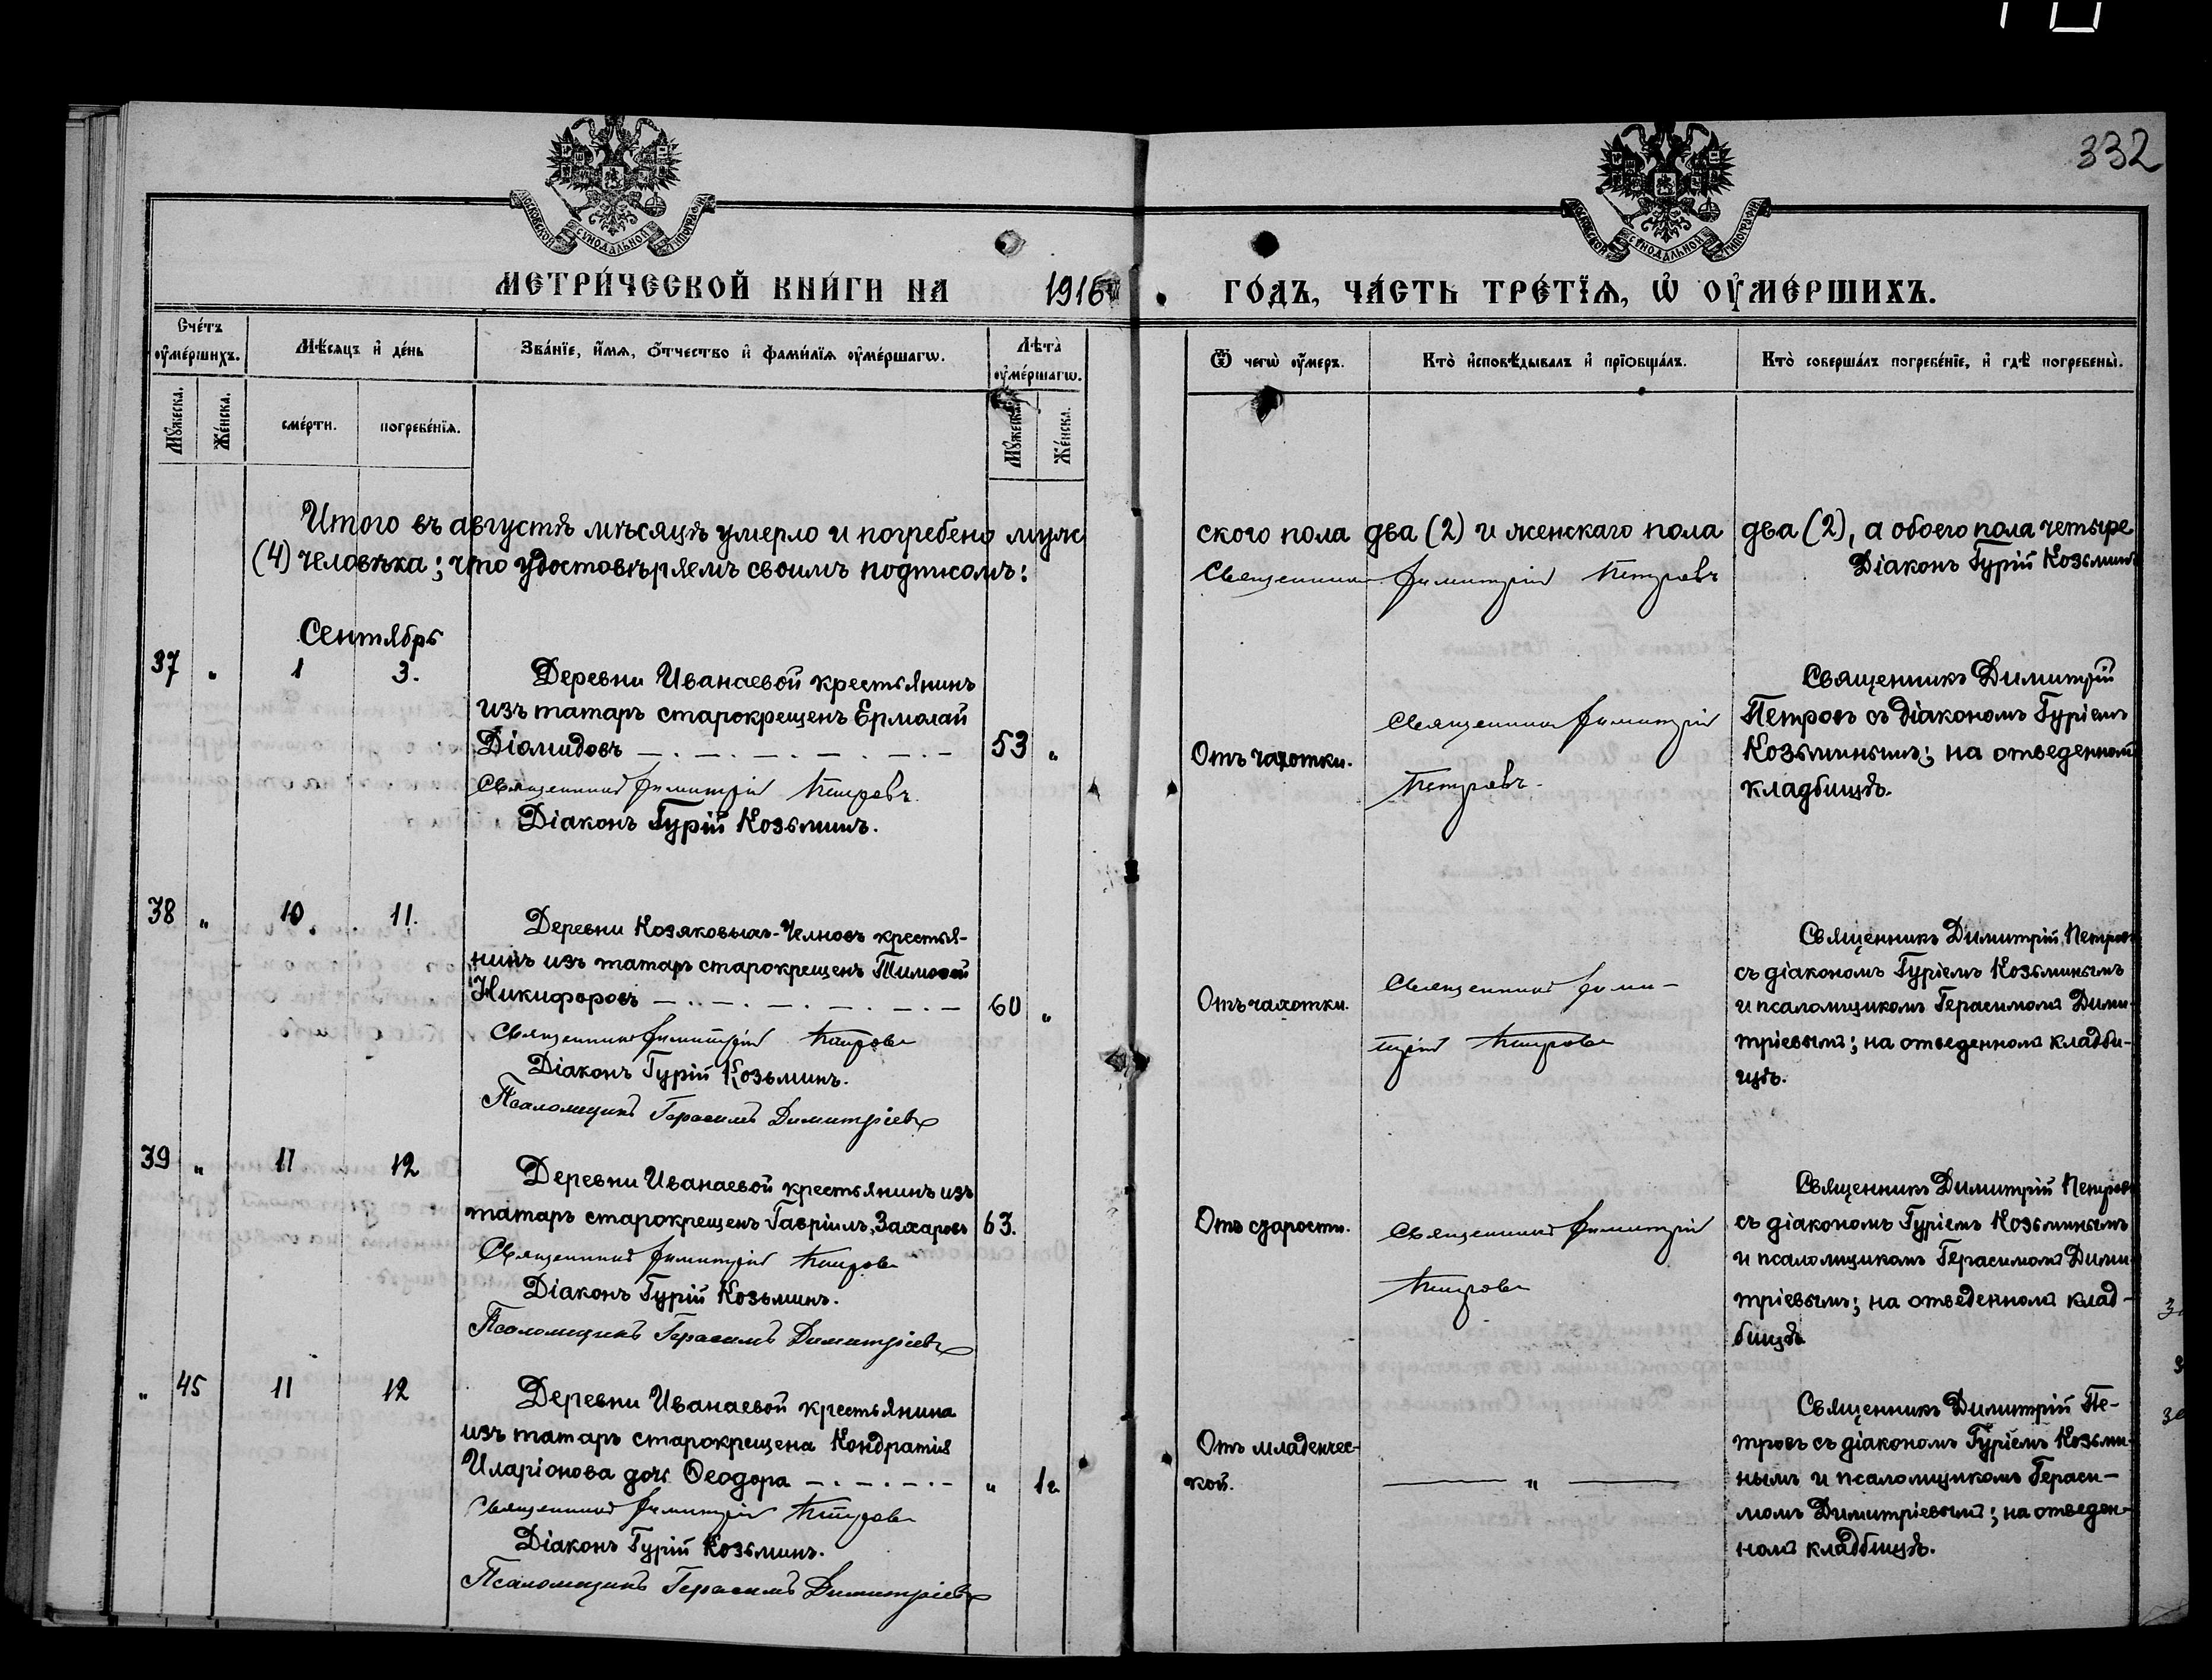 332
МОСКОВСКОЙ СУНОДАЛЬНОЙ ТИПОГРАФІИ
МОСКОВСКОЙ СУНОДАЛЬНОЙ ТИПОГРАФІИ
МЕТРИ́ЧЕСКОЙ КНИ́ГИ НА 1916 ГО́ДЪ, ЧА́СТЬ ТРЕ́ТЇѦ, Ѡ҆ ОУ҆МЕ́РШИХЪ.
Сче́тъ оу҆ме́ршихъ.
Мѣ́сѧцъ и҆ де́нь
Зва́нїе, и҆́мѧ, ѻ҆́тчество и҆ фамі́лїѧ оу҆ме́ршагѡ.
Лѣ́та оу҆ме́ршагѡ.
Ѿ чегѡ̀ оу҆́меръ.
Кто̀ и҆сповѣ́дывалъ и҆ прїѡбща́лъ.
Кто̀ соверша́лъ погребе́нїе, и҆ гдѣ̀ погребены̀.
Мꙋ́жеска.
Же́нска.
сме́рти.
погребе́нїѧ.
Мꙋ́жеска.
Же́нска.
Итого въ августѣ мѣсяцѣ умерло и погребено мужс
ского пола два (2) и женскаго пола два (2), а обоего пола четыре
(4) человѣка; что удостовѣряемъ своимъ подписомъ:
Священникъ Димитрій Петровъ
Діаконъ Гурій Козьминъ
Сентябрь
37 " 1 3.
Деревни Иванаевой крестьянинъ
изъ татаръ старокрещенъ Ермолай
Діомидовъ — . — . — . — . — . —
53 "
Священникъ Димитрій Петровъ
Діаконъ Гурій Козьминъ.
Отъ чахотки.
Священникъ Димитрій
Петровъ.
Священникъ Димитрій
Петровъ съ діакономъ Гуріемъ
Козьминымъ; на отведенномъ
кладбищѣ.
38 " 10 11.
Деревни Козяковыхъ-Челновъ крестья-
нинъ изъ татаръ старокрещенъ Тимофей
Никифоровъ — . — . — . — . — . —
60 "
Священникъ Димитрій Петровъ
Діаконъ Гурій Козьминъ.
Псаломщикъ Герасимъ Димитріевъ
Отъ чахотки.
Священникъ Дими-
трій Петровъ
Священникъ Димитрій Петровъ
съ діакономъ Гуріемъ Козьминымъ
и псаломщикомъ Герасимомъ Дими-
тріевымъ; на отведенномъ кладби-
щѣ.
39 " 11 12
Деревни Иванаевой крестьянинъ изъ
татаръ старокрещенъ Гавріилъ Захаровъ
63.
Священникъ Димитрій Петровъ
Діаконъ Гурій Козьминъ.
Псаломщикъ Герасимъ Димитріевъ
Отъ старости.
Священникъ Димитрій
Петровъ
Священникъ Димитрій Петровъ
съ діакономъ Гуріемъ Козьминымъ
и псаломщикомъ Герасимомъ Дими-
тріевымъ; на отведенномъ клад-
бищѣ
" 45 11 12
Деревни Иванаевой крестьянина
изъ татаръ старокрещена Кондратія
Иларіонова дочь Ѳеодора — . — . — . —
" 1г.
Священникъ Димитрій Петровъ
Діаконъ Гурій Козьминъ.
Псаломщикъ Герасимъ Димитріевъ
Отъ младенчес-
кой.
— " —
Священникъ Димитрій Пе-
тровъ съ діакономъ Гуріемъ Козьми-
нымъ и псаломщикомъ Гераси-
момъ Димитріевымъ; на отведен-
номъ кладбищѣ.